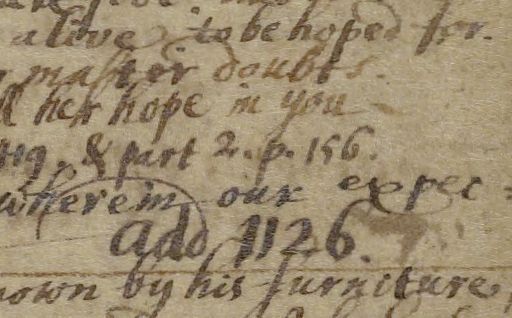 alive, to be hoped for.
master doubts.
her hope in you
119. & part 2. p. 156.
wherein our expec=
add 1126.
nown by his furniture,